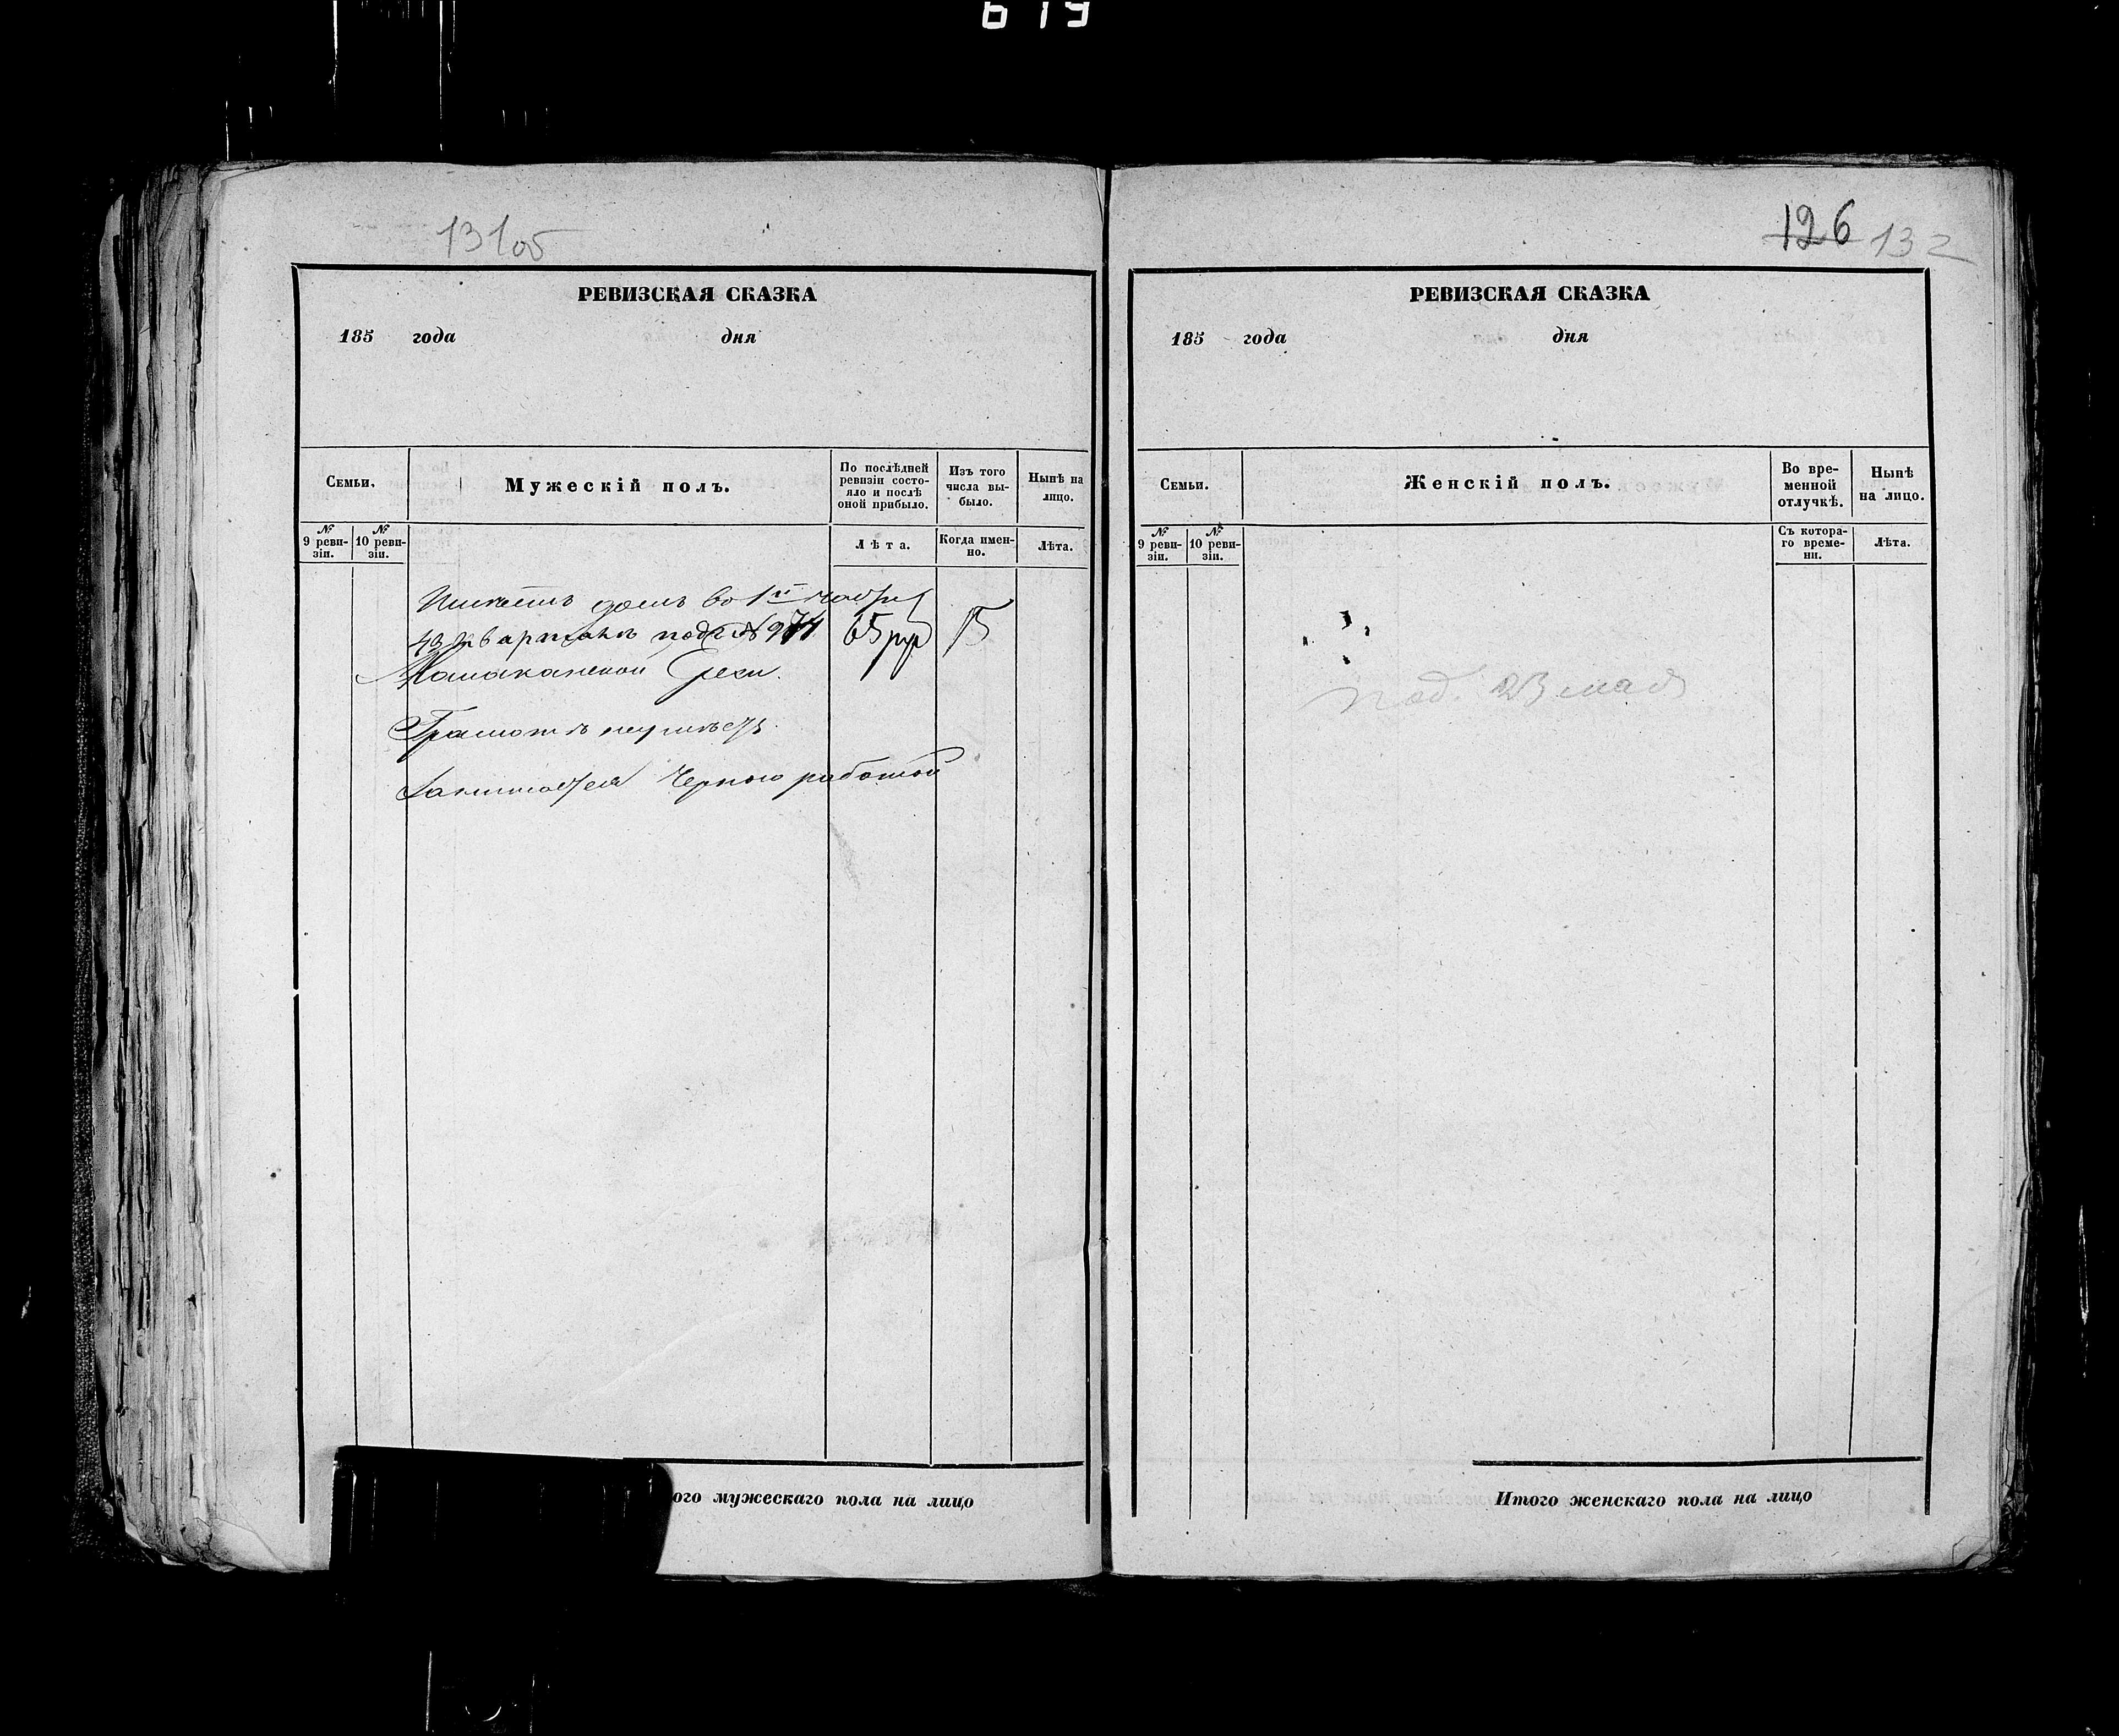 619
131об
РЕВИЗСКАЯ СКАЗКА
185 года дня
Семьи.
Мужескій полъ.
По послѣдней ревизіи состо-
яло и послѣ
оной прибыло.
Изъ того
числа вы-
было.
Нынѣ на
лицо.
№
9 реви-
зіи.
№
10 реви-
зіи.
Лѣта.
Когда имен-
но.
Лѣта.
Имѣетъ домъ во 1й части
кварталѣ подъ № 65 руб
Грамотѣ неумѣетъ
Занимается Черною работой
ого мужескаго пола на лицо
126 132
РЕВИЗСКАЯ СКАЗКА
185 года дня
Семьи.
Женскій полъ.
Во вре-
менной
отлучкѣ.
Нынѣ
на лицо.
№
9 реви-
зіи.
№
10 реви-
зіи.
Съ котора-
го време-
ни.
Лѣта.
под. 23 мая
Итого женскаго пола на лицо